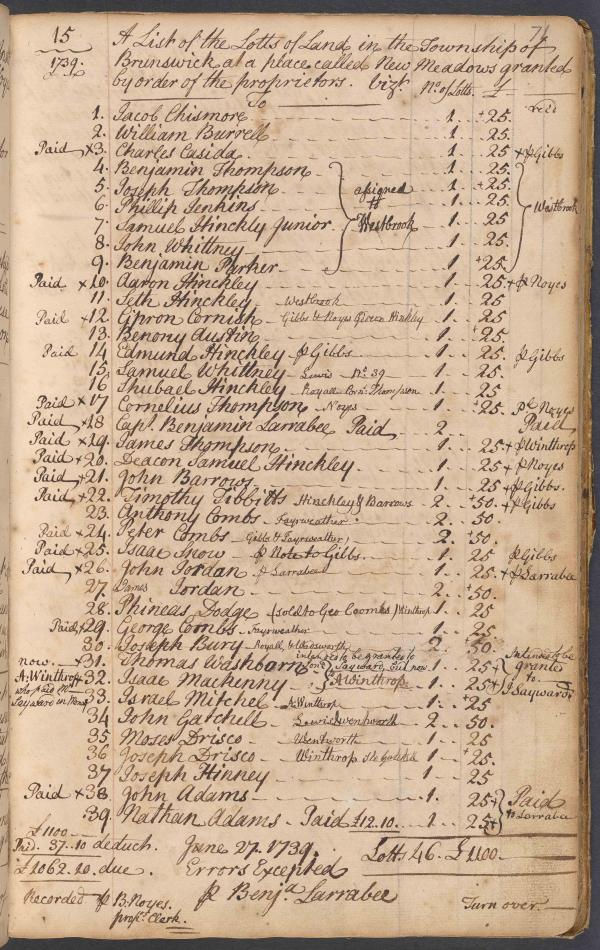 15
71
1739.
A List of the Lotts of Land in the Township of
Brunswick at a place called New Meadows granted
by order of the proprietors. Vizt. No of Lotts. £
To
1. Jacob Chismore 1 25.
2. William Burrell 1 25.
Paid x3. Charles Casida 1 25 + ⅌ Gibbs
4. Benjamin Thompson 1 25
5. Joseph Thompson asigned 1 25.
6. Phillip Jenkins to 1 25. Westbrook
7. Samuel Hinckly Junior. Westbrook 1 25.
8. John Whittney 1 25.
9. Benjamin Parker 1 25
Paid x10. Aaron Hinckley 1 25. + ⅌ Noyes
11. Seth Hinckley Westbrook 1 25
Paid +12. Cipron Cornish Gibbs & Noyes Hinkley 1 25
13. Benony Austin 1 25.
Paid 14 Edmund Hinckley ⅌ Gibbs 1 25. ⅌ Gibbs
15. Samuel Whittney Lewis No. 39 1 25.
16 Shubael Hinckley Royall Thompson 1 25
Paid x17 Cornelius Thompson Noyes 1 25. Noyes
Paid x18 Capt. Benjamin Larrabee Paid 2 Paid
Paid x19. James Thompson 1 25. + ⅌ Winthrop
Paid +20. Deacon Samuel Hinckley 1 25 + ⅌ Noyes
Paid +21. John Barrows 1 25 + ⅌ Gibbs.
Paid +22. Timothy Tibbitts Hinckley & Barrows 2 50. + ⅌ Gibbs
23. Anthony Combs Fayrweather 2 50.
Paid x24. Peter Combs Gibbs & Fayrweather 2 50
Paid +25. Isaac Snow ⅌ Note to Gibbs. 1 25 ⅌ Gibbs
Paid x26. John Jordan ⅌ Larrabee 1 25. + ⅌ Larrabee
27. James Jordan 2 50.
28. Phineas Dodge (sold to Geo Coombs) Winthrop 1 25
Paid x29. George Combs Fayrweather 1 25
30. Joseph Bury Royall, & Wadsworth 2 50.
now +31. Thomas Washbarn intended to be granted to Jone. Sayward, but now 1 25 + Intended to be granted
A. Winthrop who paid Mr Sayward +32. Isaac Mackenny to A Winthrop 1 25 + to J. Sayward
33. Israel Mitchel A Winthrop 1 25
34 John Gatchell Lewis & wenthworth 2 50.
35 Moses Drisco Wentworth 1 25
36 Joseph Drisco Winthrop 1 25.
37 Joseph Hinney 1 25
Paid x38 John Adams 1 25 + Paid
39. Nathan Adams Paid £12.10. 1 25 + to Larrabee
£1100
Paid. 37..10 deduch. June 27. 1739. Lotts 46. £1100.
£1062..10. due. Errors Excepted
⅌ Benja. Larrabee
Recorded ⅌ B. Noyes.
Clerk.
Turn over.